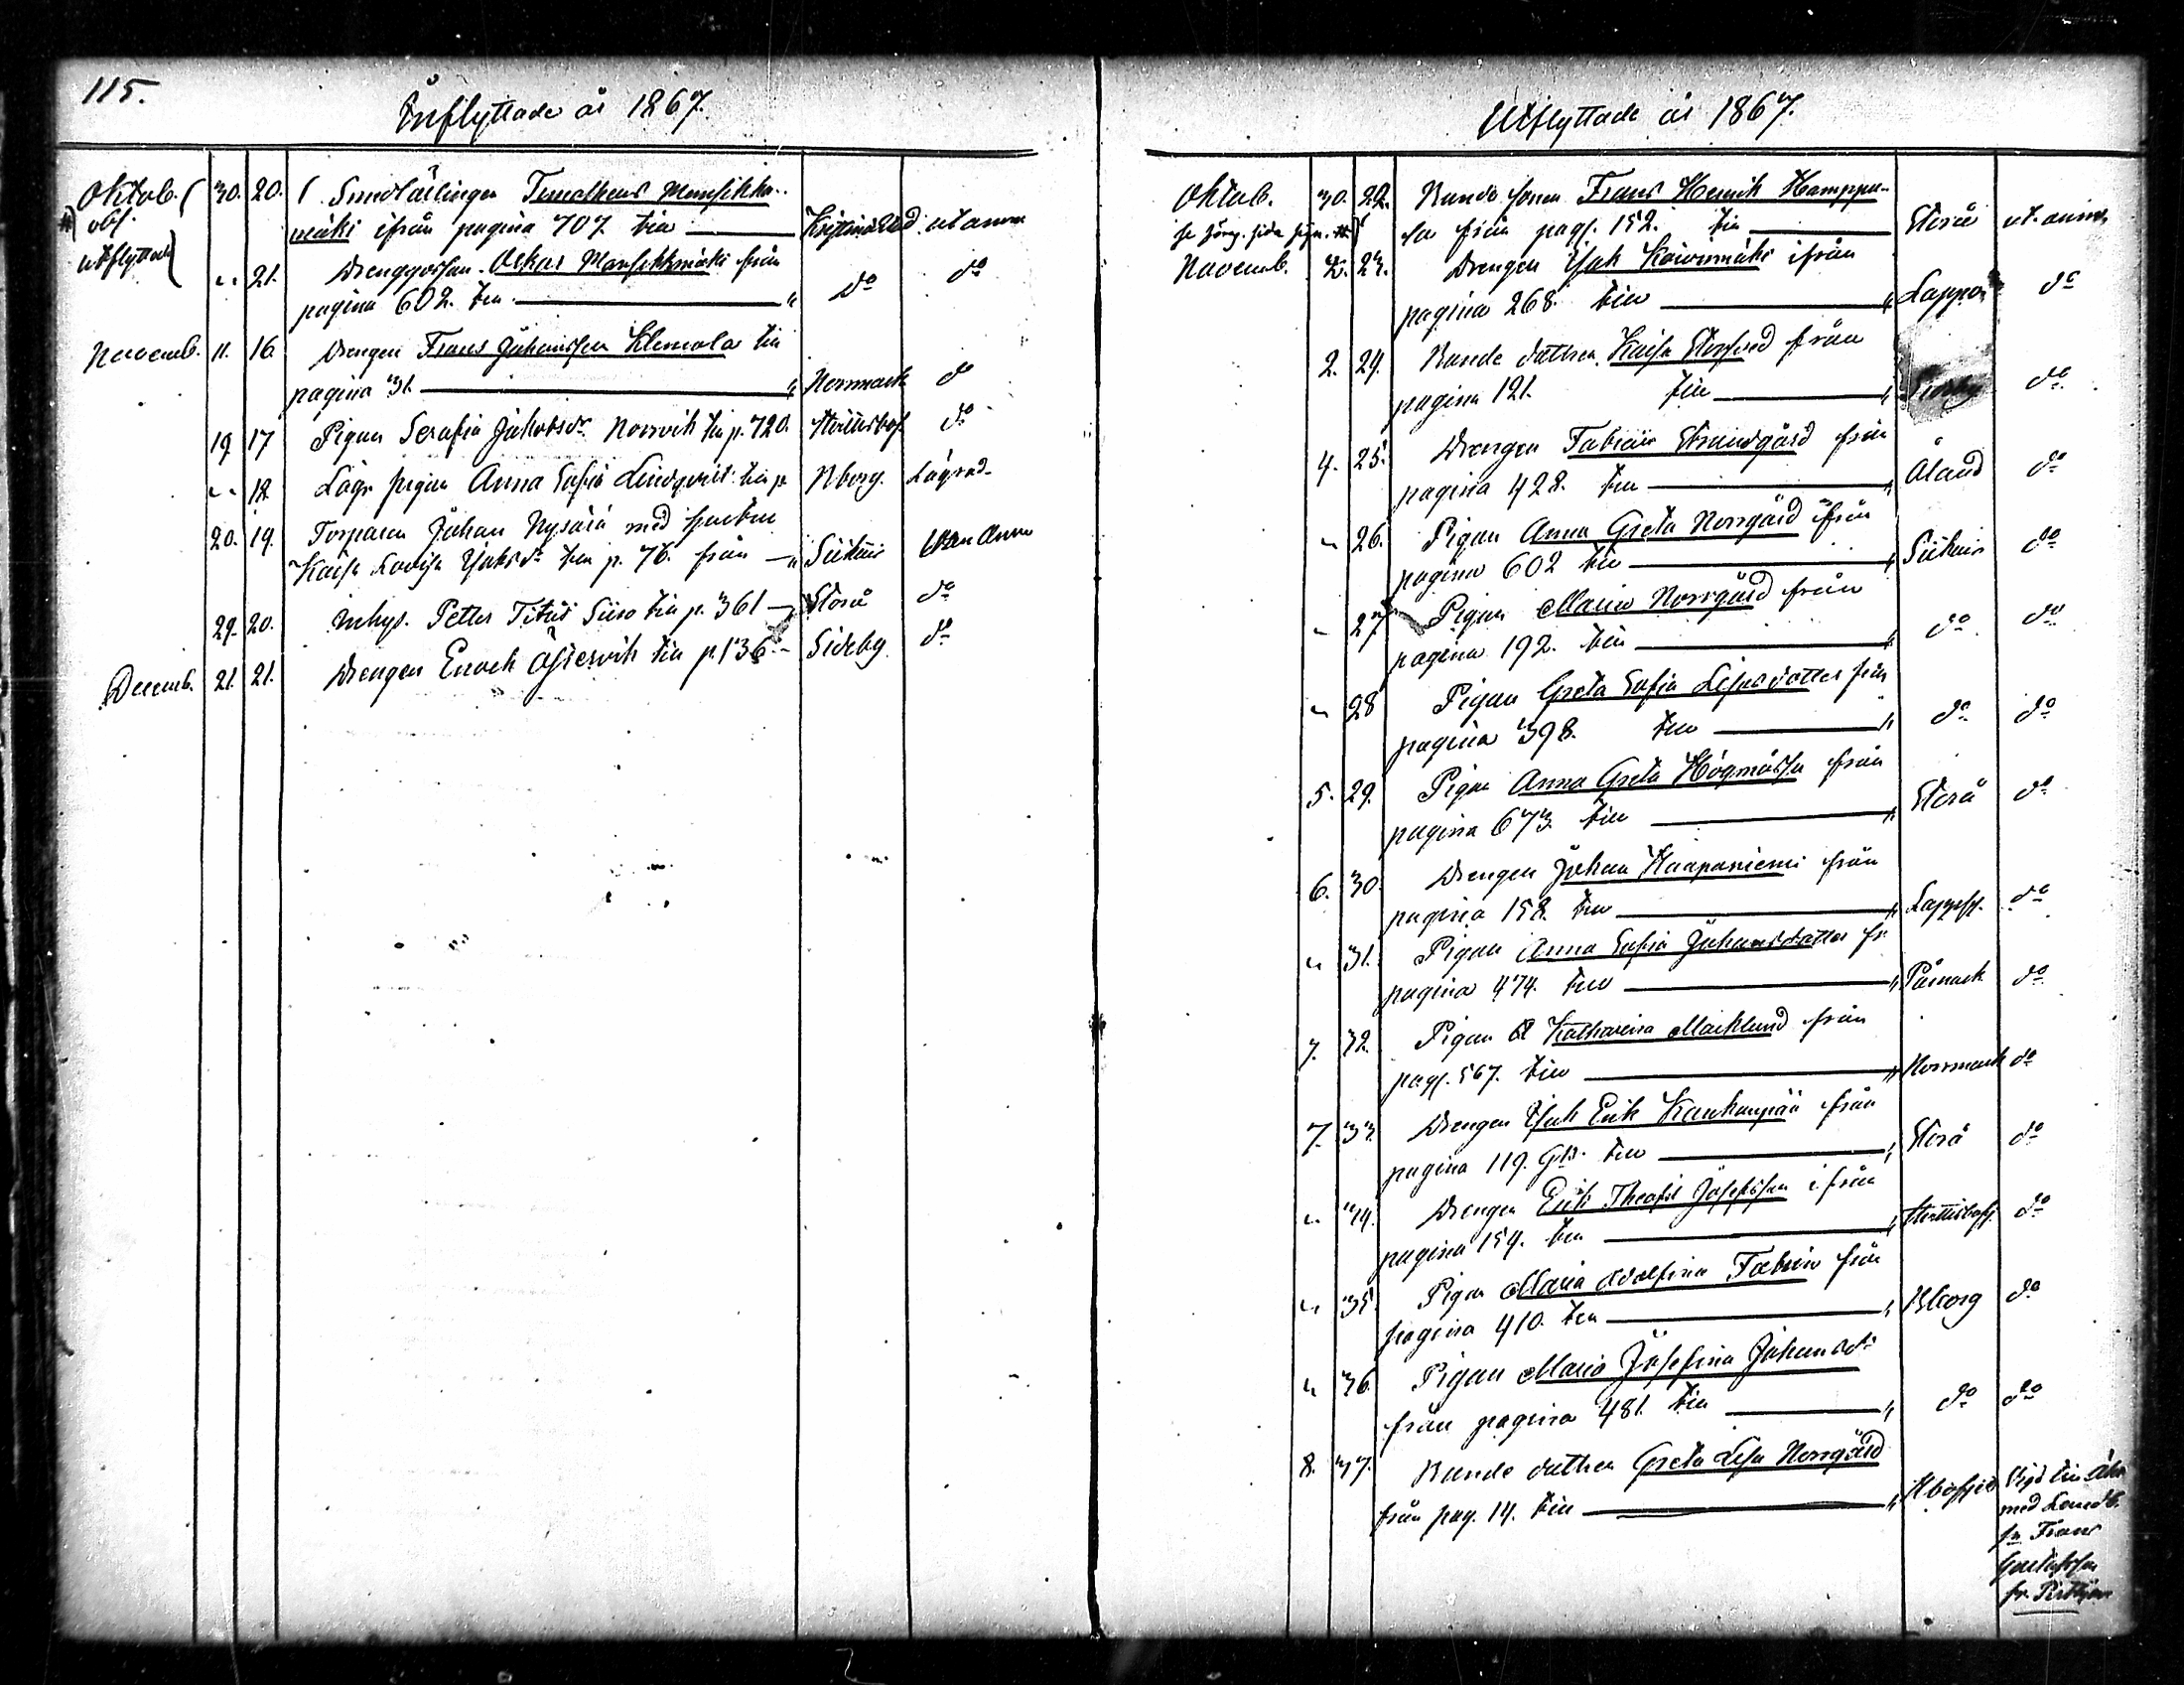 115.
Inflyttade år 1867.
Oktob. 30. 20. Timotheus Mansikka-
obs. mäki ifrån pagina 707. till Kristinestad. ut anm
utflyttade
" 21. Drenggossen Oskar Mansikkmäki från
pagina 602. till " do do
Novemb. 11. 16. Drengen Frans Johansson Klemola till
pagina 31. " Norrmark do
19. 17 Pigan Serafia Jakobsdr. Norrvik till p. 720. do
" 18. pigan Anna Sofia Lindqvist till p Nborg.
20. 19. Torparen Johan Nysåiä med hustru
Kaisa Lovisa Isaksdr till p. 76. från " Utan Anm
29. 20. Inhys. Petter Titus till p. 361 Storå do
Decemb. 21. 21. Drengen Enoch Östervik till p. 136 Sideby do
Utflyttade år 1867.
Oktob. 30. 22. Bonde sonen Frans Henrik Hamppu-
la från pag. 152. till Storå ut. anm
Novemb. 2. 23. Drengen Isak Koivumäki ifrån
pagina 268. till " Lappo do
2. 24. Bonde dottren Kaisa Storsved från
pagina 121. till " do
4. 25. Drengen Fabian Strandgård från
pagina 428. till " Åland do
" 26. Pigan Anna Greta Norrgård ifrån
pagina 602 till " do
" 27 Pigan Maria Norrgård från
pagina 192. till " do do
" 28 Pigan Greta Sofia Lisasdotter från
pagina 398. till " do do
5. 29. Pigan Anna Greta Högmåssa från
pagina 673. till " Storå do
6. 30. Drengen Johan Haapaniemi från
pagina 158. till " Lappfj. do
" 31. Pigan Anna Sofia Johansdotter fr.
pagina 474. till " Påmark do
7. 32. Pigan Katharina Marklund från
pag. 567. till " Norrmark do
7. 33. Drengen Isak Erik Kankanpää från
pagina 119. till " Storå do
" 34. Drengen Erik Theofil Josefsson ifrån
pagina 154. till " do
" 35. Pigan Maria Adolfina Fabrin från
pagina 410. till " Bborg do
" 36. Pigan Maria Josefina Johansdr
från pagina 481. till " do do
8. 37. Bonde dottren Greta Lisa Norrgård
från pag. 14. till "
med
fr Frans
Gustafsson